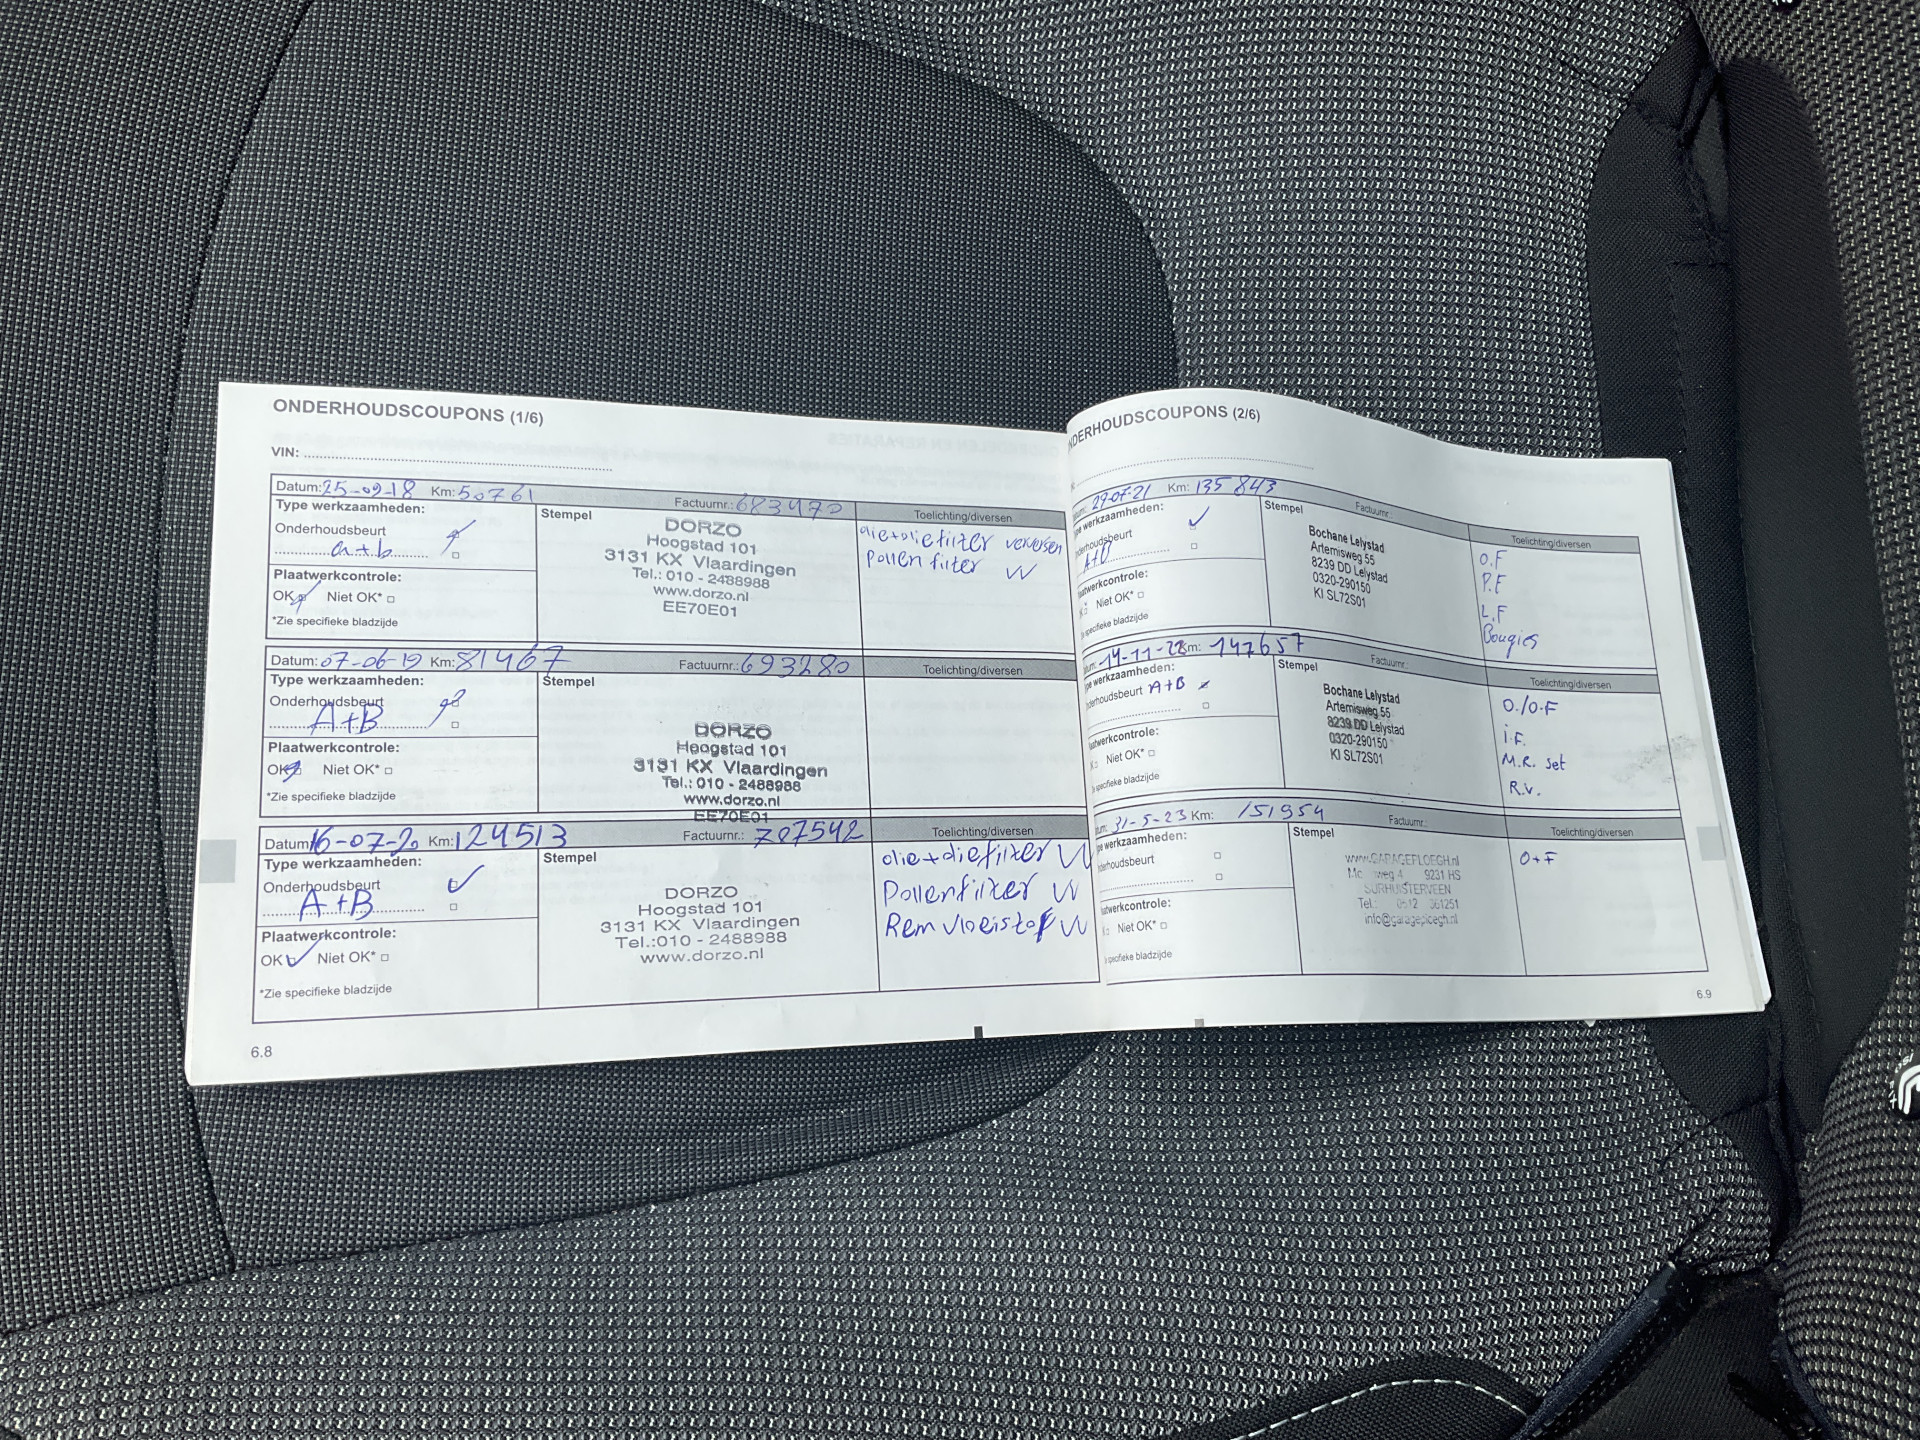 ONDERHOUDSCOUPONS (1/6)
VIN:
Datum: 25-09-18 Km: 50761 Factuurnr.: 683470
Type werkzaamheden:
Onderhoudsbeurt
a+b
Plaatwerkcontrole:
OK Niet OK*
*Zie specifieke bladzijde
Stempel
DORZO
Hoogstad 101
3131 KX Vlaardingen
Tel.: 010 - 2488988
www.dorzo.nl
EE70E01
Toelichting/diversen
olie+oliefilter verversen
Pollen filter VV
Datum: 07-06-19 Km: 81467 Factuurnr.: 693280
Type werkzaamheden:
Onderhoudsbeurt
A+B
Plaatwerkcontrole:
OK Niet OK*
*Zie specifieke bladzijde
Stempel
DORZO
Hoogstad 101
3131 KX Vlaardingen
Tel.: 010 - 2488988
www.dorzo.nl
EE70E01
Toelichting/diversen
Datum: 16-07-20 Km: 124513 Factuurnr.: 707542
Type werkzaamheden:
Onderhoudsbeurt
A+B
Plaatwerkcontrole:
OK Niet OK*
*Zie specifieke bladzijde
Stempel
DORZO
Hoogstad 101
3131 KX Vlaardingen
Tel.:010 - 2488988
www.dorzo.nl
Toelichting/diversen
olie+oliefilter VV
Pollenfilter VV
Remvloeistof VV
6.8
NDERHOUDSCOUPONS (2/6)
29-07-21 Km: 135843 Factuurnr.:
werkzaamheden:
nderhoudsbeurt
A+B
Niet OK*
specifieke bladzijde
Stempel
Bochane Lelystad
Artemisweg 55
8239 DD Lelystad
0320-290150
KI SL72S01
Toelichting/diversen
O.F
P.F
L.F
Bougies
14-11-22 Km: 147657 Factuurnr.:
werkzaamheden:
nderhoudsbeurt A+B
Niet OK*
specifieke bladzijde
Stempel
Bochane Lelystad
Artemisweg 55
8239 DD Lelystad
0320-290150
KI SL72S01
Toelichting/diversen
O./O.F
i.F.
M.R. set
R.V.
31-5-23 Km: 151954 Factuurnr.:
werkzaamheden:
nderhoudsbeurt
Niet OK*
specifieke bladzijde
Stempel
www.GARAGEPLOEGH.nl
weg 4 9231 HS
SURHUISTERVEEN
Tel.: 0512 361251
info@garageploegh.nl
Toelichting/diversen
O+F
6.9